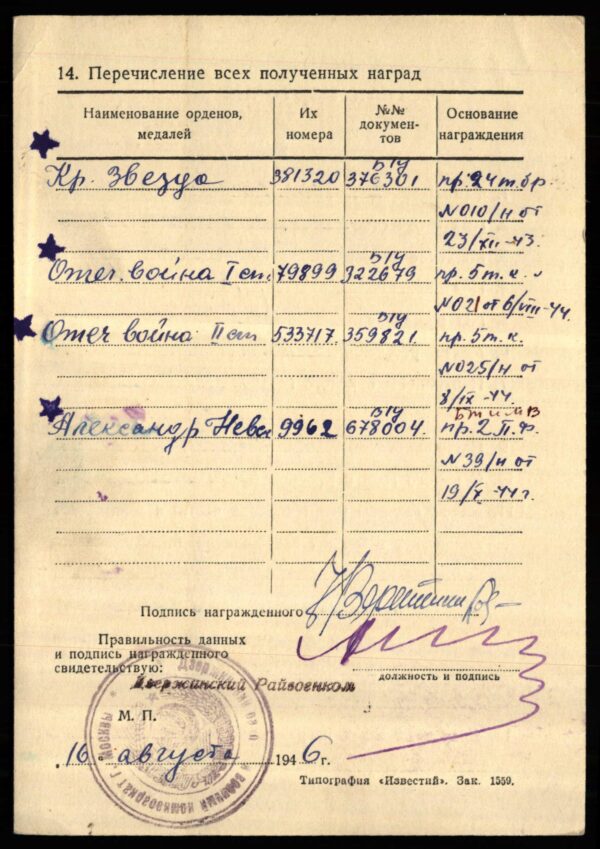 14. Перечисление всех полученных наград
Наименование орденов, медалей
Их номера
№№ документов
Основание награждения
Кр. Звезда 381320 б/у 376301 пр. 24 т. бр.
№010/н от
23/XII-43.
Отеч. война I ст. 79899 б/у 322679 пр. 5 т. к.
№021 от 6/VIII-44.
Отеч война II ст 533717. б/у 359821 пр. 5 т. к.
№025/н от
8/IX-44.
Александр Невс 9962 б/у 678004. пр. 2 П.Ф.
№39/н от
19/X-44 г.
Подпись награжденного
Правильность данных
и подпись награжденного
свидетельствую:
должность и подпись
Дзержинский Райвоенком
М. П.
16 августа 1946 г.
Типография «Известий». Зак. 1559.